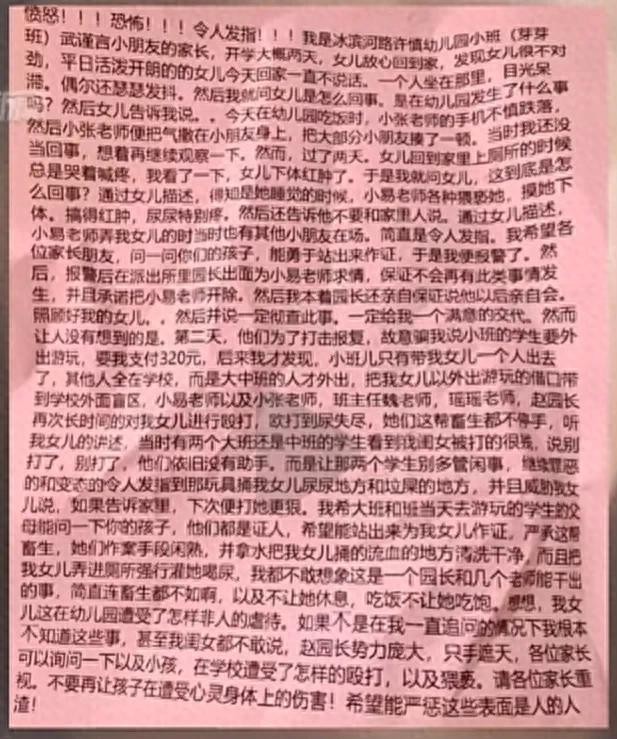 愤怒!!!恐怖!!!令人发指!!!我是冰滨河路许慎幼儿园小班(芽芽
班)武谨言小朋友的家长,开学大概两天,女儿放心回到家,发现女儿很不对
劲,平日活泼开朗的的女儿今天回家一直不说话。一个人坐在那里,目光呆
滞。偶尔还瑟瑟发抖。然后我就问女儿是怎么回事。是在幼儿园发生了什么事
吗?然后女儿告诉我说。。今天在幼儿园吃饭时,小张老师的手机不慎跌落,
然后小张老师便把气撒在小朋友身上,把大部分小朋友揍了一顿。当时我还没
当回事,想着再继续观察一下。然而,过了两天。女儿回到家里上厕所的时候
总是哭着喊疼,我看了一下,女儿下体红肿了。于是我就问女儿,这到底是怎
么回事?通过女儿描述,得知是她睡觉的时候,小易老师各种猥亵她,摸她下
体。搞得红肿,尿尿特别疼。然后还告诉他不要和家里人说。通过女儿描述,
小易老师弄我女儿的时当时也有其他小朋友在场。简直是令人发指。我希望各
位家长朋友,问一问你们的孩子,能勇于站出来作证,于是我便报警了。然
后,报警后在派出所里园长出面为小易老师求情,保证不会再有此类事情发
生,并且承诺把小易老师开除。然后我本着园长还亲自保证说他以后亲自会。
照顾好我的女儿。,然后并说一定彻查此事。一定给我一个满意的交代。然而
让人没有想到的是。第二天,他们为了打击报复,故意骗我说小班的学生要外
出游玩,要我支付320元,后来我才发现,小班儿只有带我女儿一个人出去
了,其他人全在学校,而是大中班的人才外出,把我女儿以外出游玩的借口带
到学校外面盲区,小易老师以及小张老师,班主任魏老师,瑶瑶老师,赵园长
再次长时间的对我女儿进行殴打,欧打到尿失尽,她们这帮畜生都不停手,听
我女儿的讲述,当时有两个大班还是中班的学生看到我闺女被打的很惨,说别
打了,别打了,他们依旧没有助手。而是让那两个学生别多管闲事,继续罪恶
的和变态的令人发指到那玩具捅我女儿尿尿地方和垃屎的地方,并且威胁我女
儿说,如果告诉家里,下次便打她更狠。我希大班和班当天去游玩的学生的父
母能问一下你的孩子,他们都是证人,希望能站出来为我女儿作证,严承这帮
畜生,她们作案手段闲熟,并拿水把我女儿捅的流血的地方清洗干净,而且把
我女儿弄进厕所强行灌她喝尿,我都不敢想象这是一个园长和几个老师能干出
的事,简直连畜生都不如啊,以及不让她休息,吃饭不让她吃饱。想想,我女
儿这在幼儿园遭受了怎样非人的虐待。如果不是在我一直追问的情况下我根本
不知道这些事,甚至我闺女都不敢说,赵园长势力庞大,只手遮天,各位家长
可以询问一下以及小孩,在学校遭受了怎样的殴打,以及猥亵。请各位家长重
视。不要再让孩子在遭受心灵身体上的伤害!希望能严惩这些表面是人的人
渣!